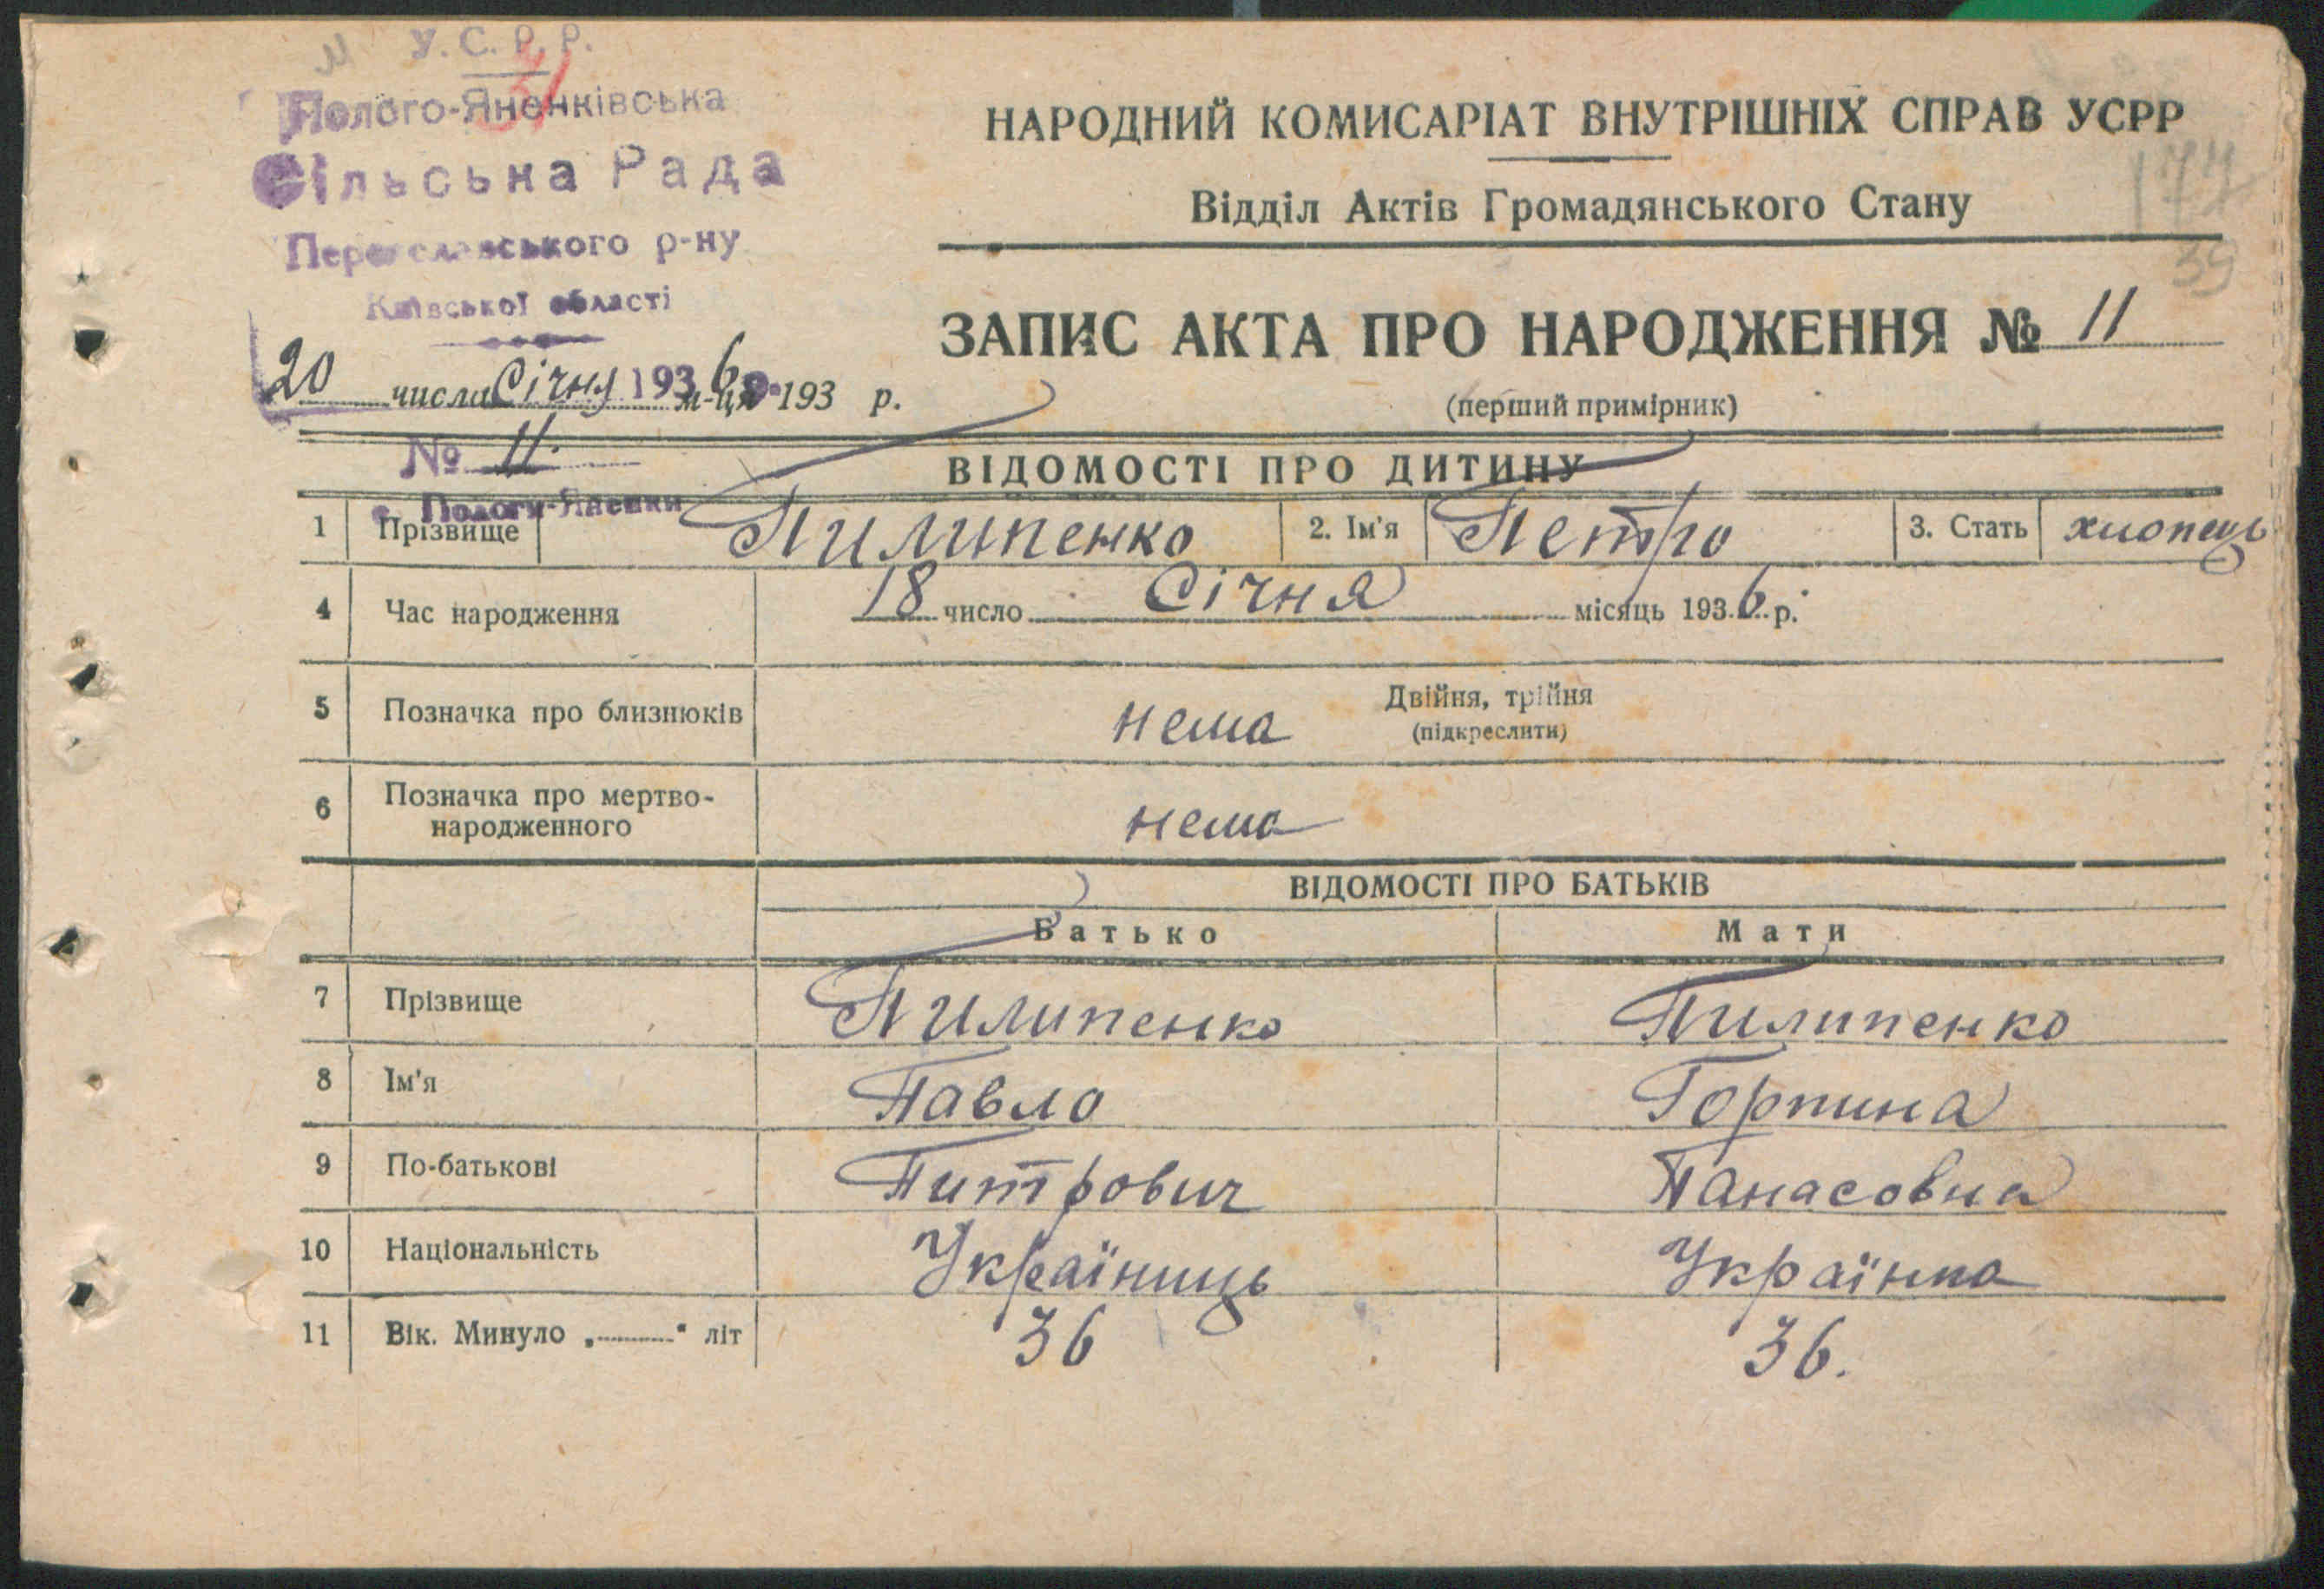 У.С.Р.Р.
Полого-Яненківська
Сільська Рада
Переяславського р-ну
Київської області
20 числа Січня 1936 р. м-ця 193 р.
№ 11.
с. Пологи-Яненки
НАРОДНИЙ КОМИСАРІАТ ВНУТРІШНІХ СПРАВ УСРР
Відділ Актів Громадянського Стану
39
ЗАПИС АКТА ПРО НАРОДЖЕННЯ № 11
(перший примірник)
ВІДОМОСТІ ПРО ДИТИНУ
1 Прізвище Пилипенко 2. Ім'я Петро 3. Стать хлопець
4 Час народження 18 число Січня місяць 1936 р.
5 Позначка про близнюків нема Двійня, трійня
(підкреслити)
6 Позначка про мертво-
народженного нема
ВІДОМОСТІ ПРО БАТЬКІВ
Батько Мати
7 Прізвище Пилипенко Пилипенко
8 Ім'я Павло Горпина
9 По-батькові Питрович Панасовна
10 Національність Україниць Українка
11 Вік. Минуло „ " літ 36 36.